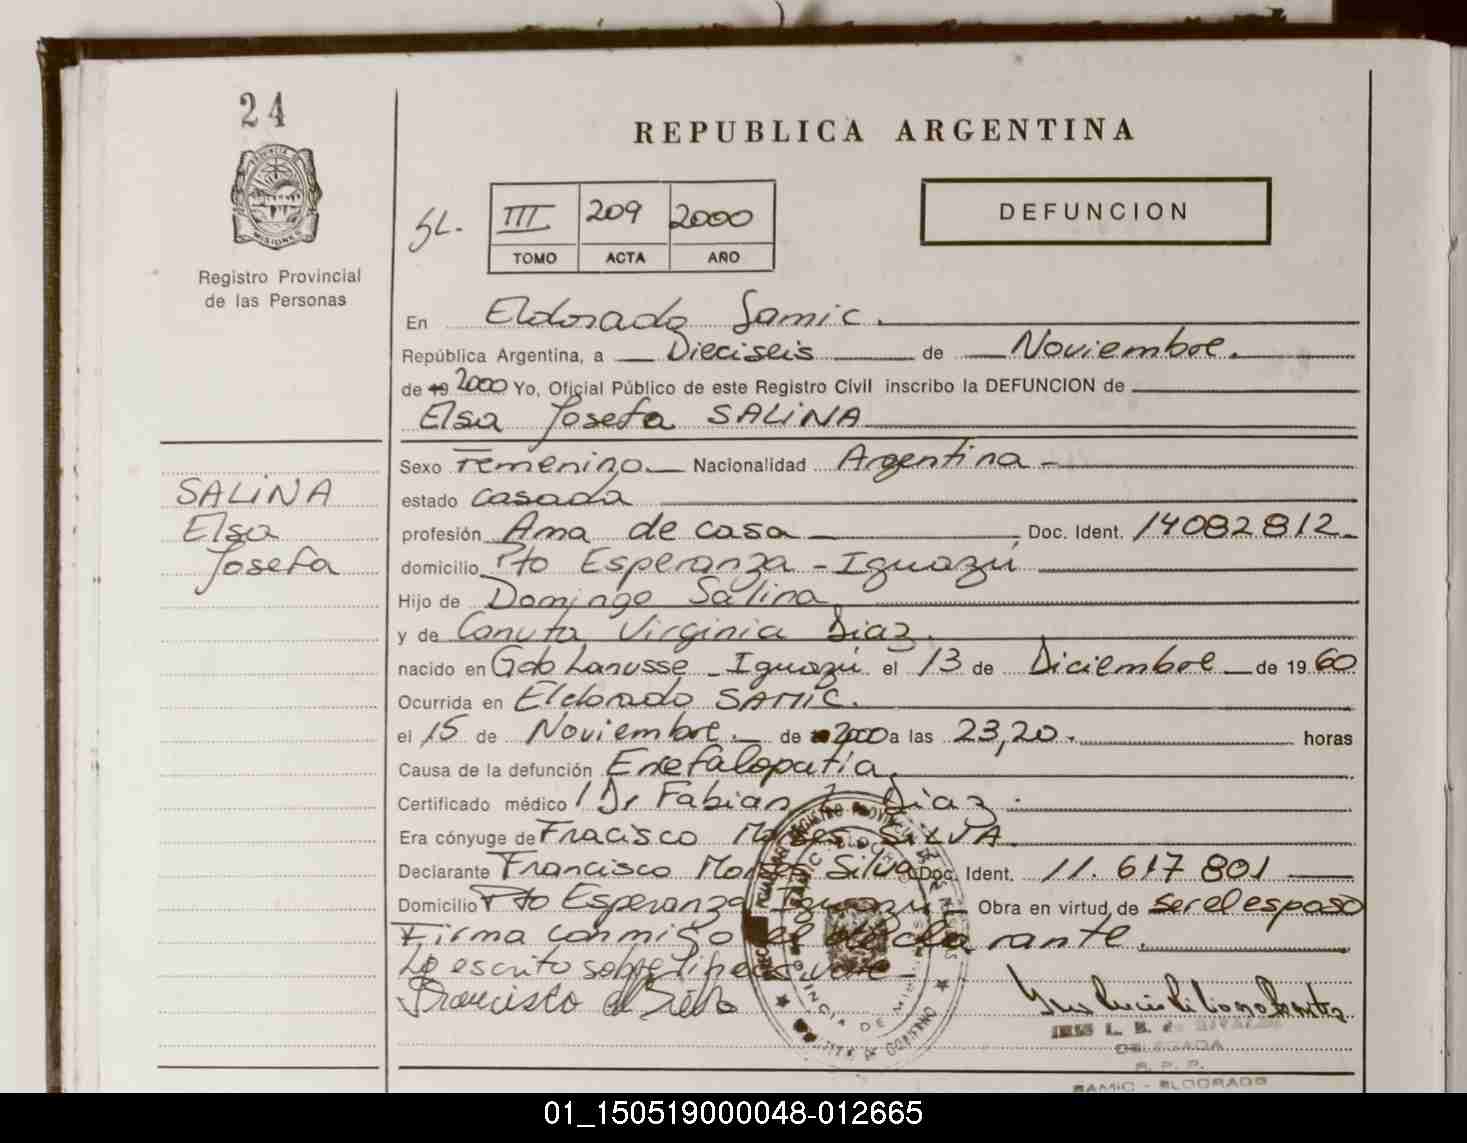 24
REPUBLICA ARGENTINA
PROVINCIA DE
MISIONES
Registro Provincial
de las Personas
SL.
III 209 2000
TOMO ACTA AÑO
DEFUNCION
En Eldorado Samic.
República Argentina, a Dieciseis de Noviembre.
de 19 2000 Yo, Oficial Público de este Registro Civil inscribo la DEFUNCION de
Elsa Josefa SALINA
Sexo Femenino. Nacionalidad Argentina -
SALINA
Elsa
Josefa
estado casada
profesión Ama de casa Doc. Ident. 14082812.
domicilio Pto Esperanza - Iguazú
Hijo de Domingo Salina
y de Canuta Virginia Diaz.
nacido en Gdo Lanusse - Iguazú el 13 de Diciembre de 1960
Ocurrida en Eldorado SAMIC.
el 15 de Noviembre. de 2000 a las 23,20. horas
Causa de la defunción Encefalopatia.
Certificado médico Dr Fabian Diaz.
Era cónyuge de Fracisco SILVA.
Declarante Francisco Silva Doc. Ident. 11.617801
Domicilio Pto Esperanza Iguazú Obra en virtud de ser el esposo
Firma conmigo el declarante.
Lo escrito sobre lineas vale -
Francisco
DELEGADA
R. P. P.
SAMIC - ELDORADO
01_150519000048-012665